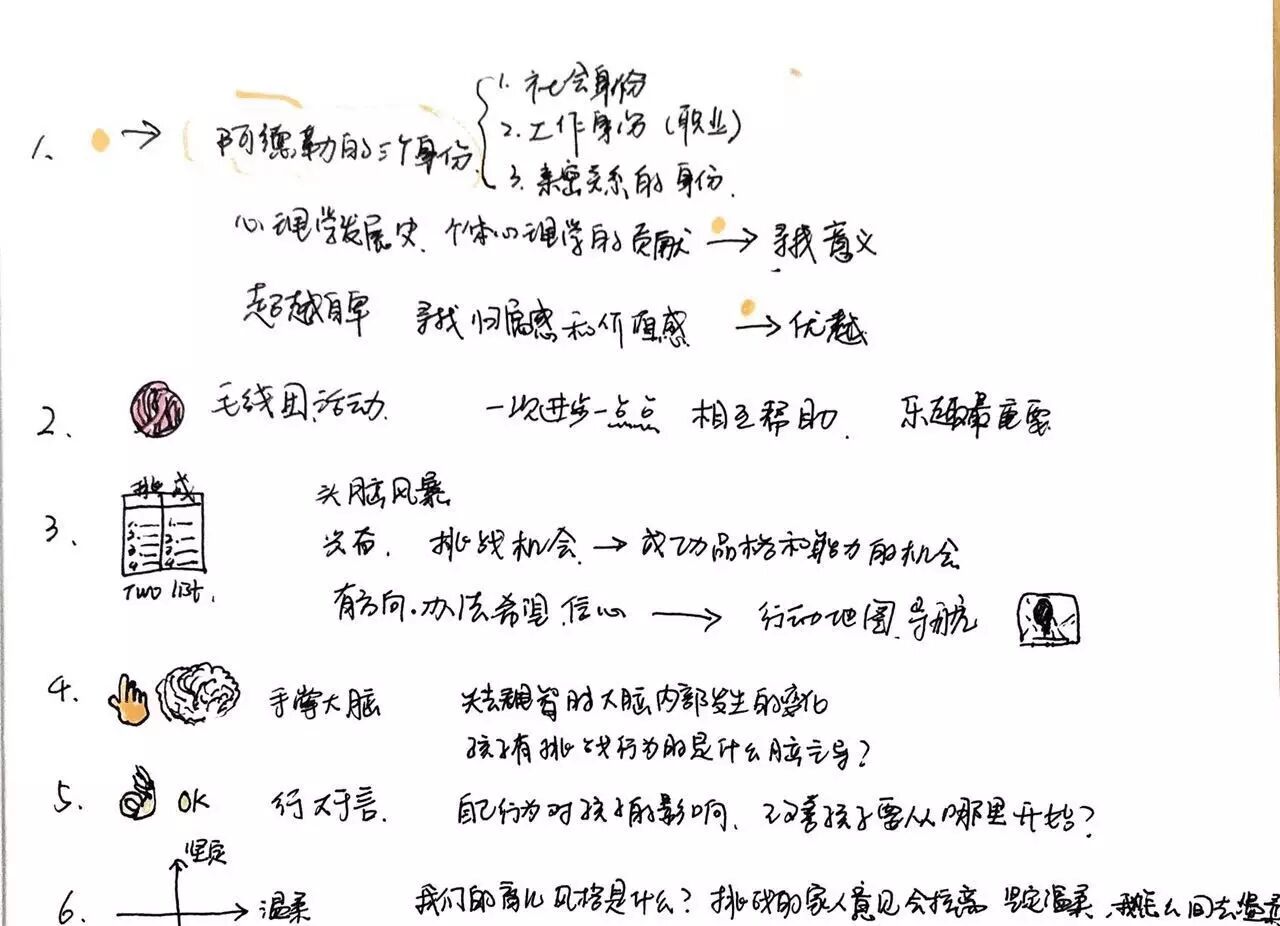 1. → 阿德勒的三个身份
1. 社会身份
2. 工作身份(职业)
3. 亲密关系的身份.
心理学发展史. 个体心理学的贡献 → 寻找意义
超越自卑 寻找归属感和价值感 → 优越
2. 毛线团活动. 一次进步一点点 相互帮助. 乐趣最重要
3. 挑 成
1. 1.
2. 2.
3. 3.
4 4
TWO list.
头脑风暴
兴奋. 挑战机会 → 成功品格和能力的机会
有方向.办法希望.信心 → 行动地图.导航
4. 手掌大脑 失去理智时大脑内部发生的变化
孩子有挑战行为时是什么脑主导?
5. OK 行大于言. 自己行为对孩子的影响. 改善孩子要从哪里开始?
坚定
6. 温柔 我们的育儿风格是什么? 挑战的家人意见会 坚定温柔.